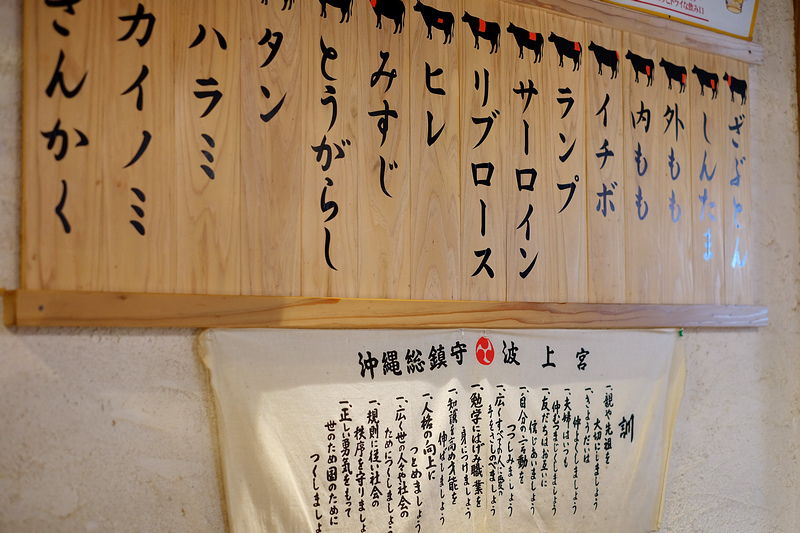 ざぶとん
しんたま
外もも
内もも
イチボ
ランプ
サーロイン
リブロース
ヒレ
みすじ
とうがらし
タン
ハラミ
カイノミ
さんかく
沖縄総鎮守 波上宮
訓
一、親や先祖を
大切にしましょう
一、きょうだいは
仲よくしましょう
一、夫婦はいつも
仲むつまじくしましょう
一、友だちはお互いに
信じあいましょう
一、自分の言動を
つつしみましょう
一、広くすべての人に愛の
手をさしのべましょう
一、勉学にはげみ職業を
身につけましょう
一、知識を高め才能を
伸ばしましょう
一、人格の向上に
つとめましょう
一、広く世の人々や社会の
ためにつくしましょう
一、規則に従い社会の
秩序を守りましょう
一、正しい勇気をもって
世のため国のために
つくしましょ